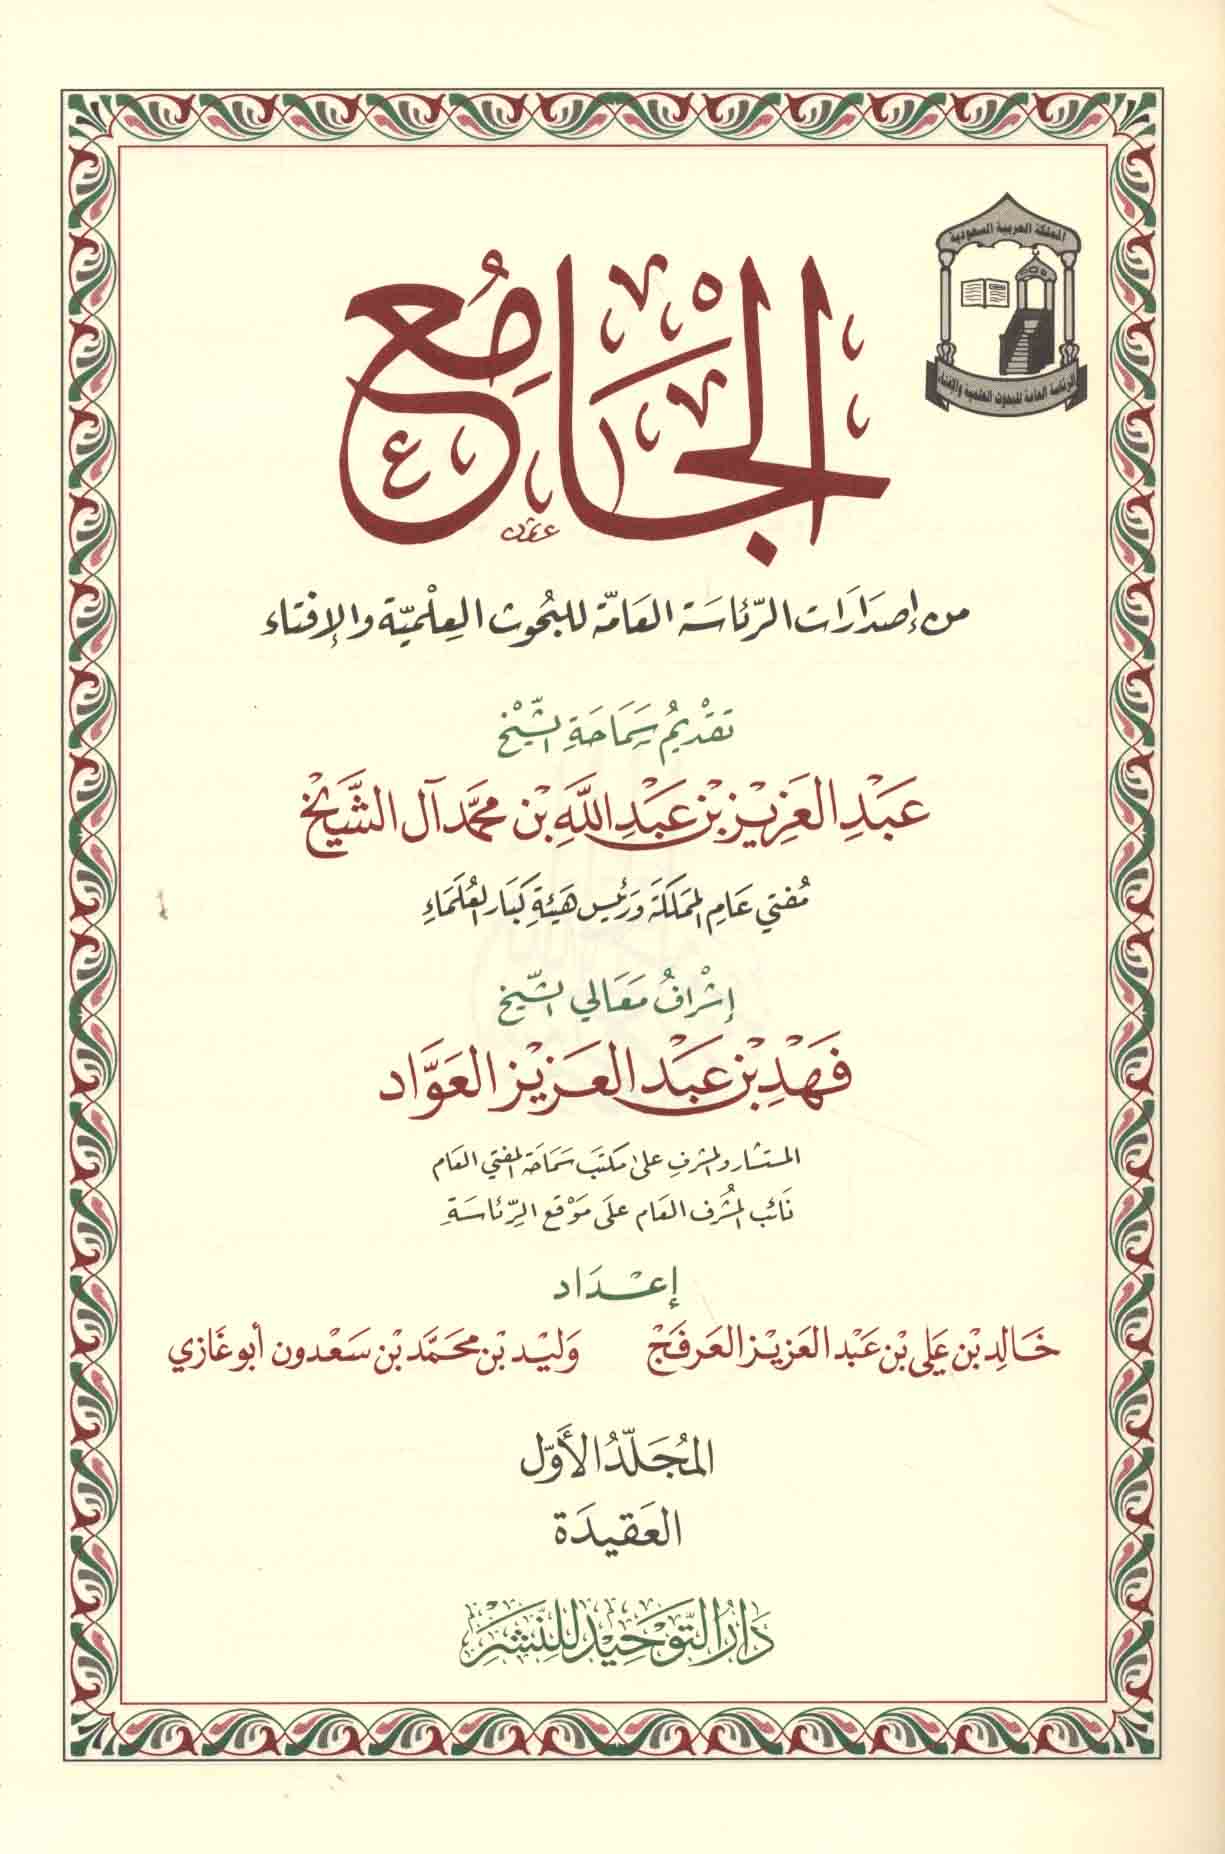 المملكة العربية السعودية
الرئاسة العامة للبحوث العلمية والإفتاء
الجَامِع
من إصدَارَات الرّئاسَة العَامّة للبُحُوث العِلْميّة والإفتاء
تَقْدِيمُ سَمَاحَةِ الشَّيْخ
عَبْدِ العَزِيْز بْن عَبْدِ اللَّهِ بْن محمَّد آل الشَّيْخ
مُفتي عَام المَملَكَة وَرَئيس هَيئَةِ كِبَار العُلَمَاءِ
إشْرَافُ مَعَالي الشَّيْخ
فَهْدِ بْن عَبْد العَزيْز العَوَّاد
المستشار والمشرف على مكتب سَمَاحَة المفتي العَام
نَائب المُشرف العَام عَلى مَوْقع الرِّئاسَةِ
إعْدَاد
خَالِد بْن عَلي بْن عَبْد العَزيْز العَرفَج وَليْد بْن محَمَّد بْن سَعْدون أبو غَازي
المُجَلّدُ الأَوّل
العَقيدَة
دَارُ التَّوْحِيْد لِلنَّشْرِ